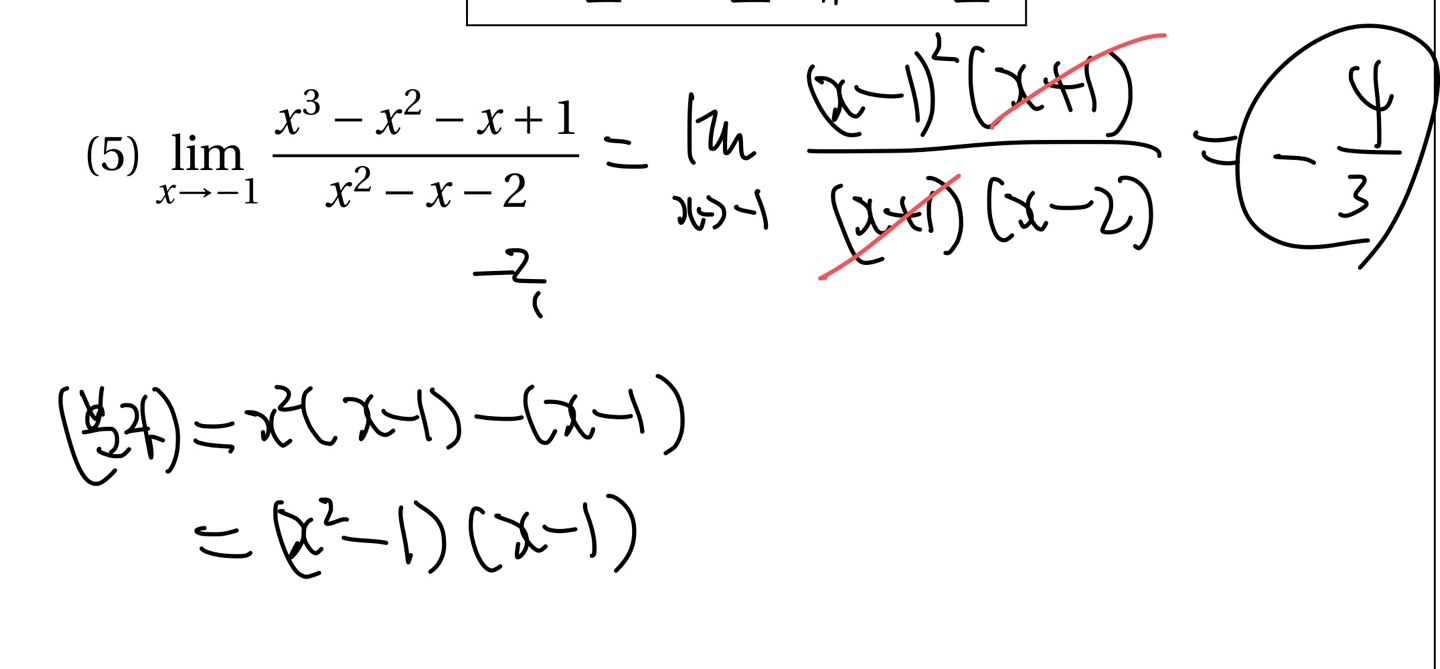 (5) lim_{x→−1} (x³ − x² − x + 1)/(x² − x − 2) = lim_{x→−1} ((x−1)²(x+1))/((x+1)(x−2)) = −4/3
−2
1
(분자) = x²(x−1)−(x−1)
= (x²−1)(x−1)